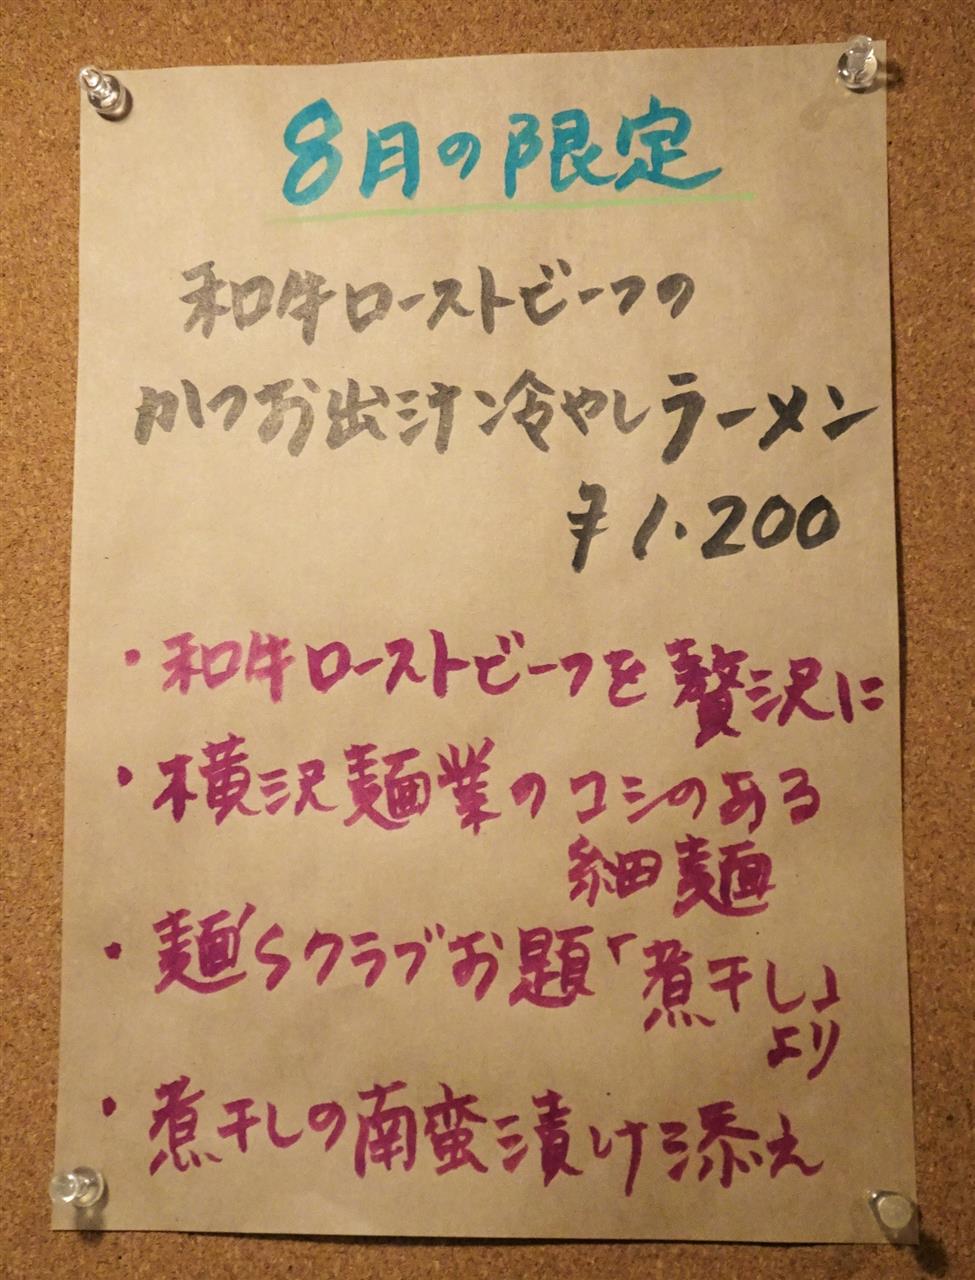 8月の限定
和牛ローストビーフの
かつお出汁冷やしラーメン
¥1.200
・和牛ローストビーフを贅沢に
・横沢麺業のコシのある
細麺
・麺'Sクラブお題「煮干し」
より
・煮干しの南蛮漬け添え